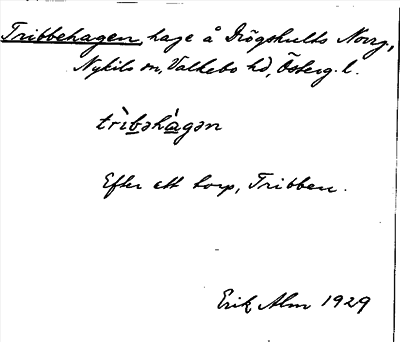 Tribbehagen, hage å Drögshults Norrg.,
Nykils sn, Valkebo hd, Österg. l.
trìbəhàgən
Efter ett torp, Tribben.
Erik Alm 1929